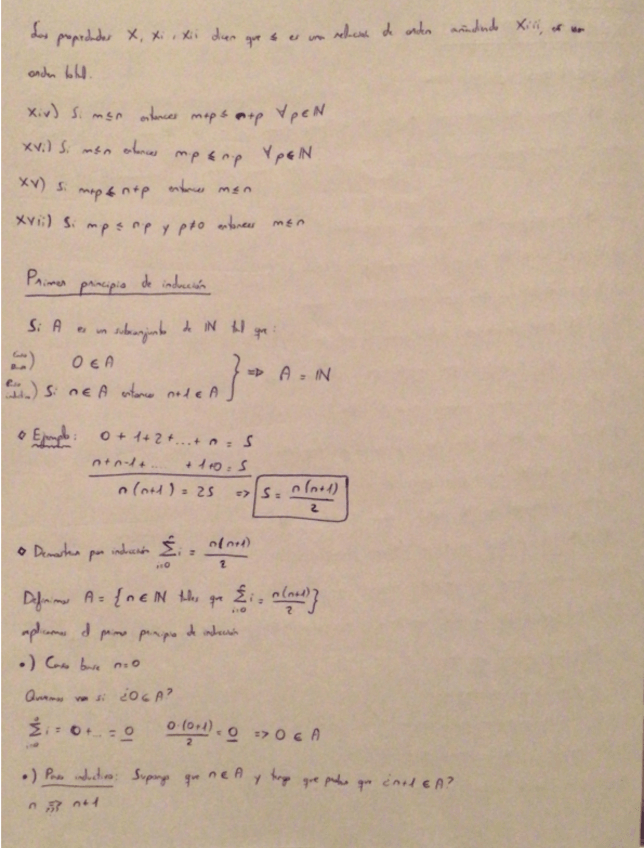 Las propiedades X, Xi, Xii dicen que ≤ es una relación de orden añadiendo Xiii, es un
orden total.
Xiv) Si m≤n entonces m+p ≤ n+p ∀p∈ℕ
XVi) Si m≤n entonces mp ≤ n·p ∀p∈ℕ
XV) Si m+p ≤ n+p entonces m≤n
XVii) Si mp ≤ n·p y p≠0 entonces m≤n
Primer principio de inducción
Si A es un subconjunto de ℕ tal que:
Caso base) 0 ∈ A
Paso inductivo) Si n∈A entonces n+1 ∈ A } => A = ℕ
Ejemplo: 0 + 1 + 2 + ... + n = S
n + n-1 + .... + 1+0 = S
n(n+1) = 2S => S = n(n+1)/2
Demostrar por inducción Σ_{i=0}^{n} i = n(n+1)/2
Definimos A = {n∈ℕ tales que Σ_{i=0}^{n} i = n(n+1)/2}
aplicamos el primer principio de inducción
•) Caso base n=0
Queremos ver si ¿0∈A?
Σ_{i=0}^{0} i = 0 + .. = 0 0·(0+1)/2 = 0 => 0 ∈ A
•) Paso inductivo: Supongo que n∈A y tengo que probar que ¿n+1 ∈ A?
n => n+1